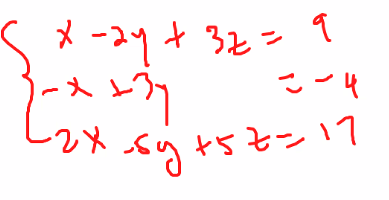 x - 2y + 3z = 9
-x + 3y = -4
2x - 5y + 5z = 17